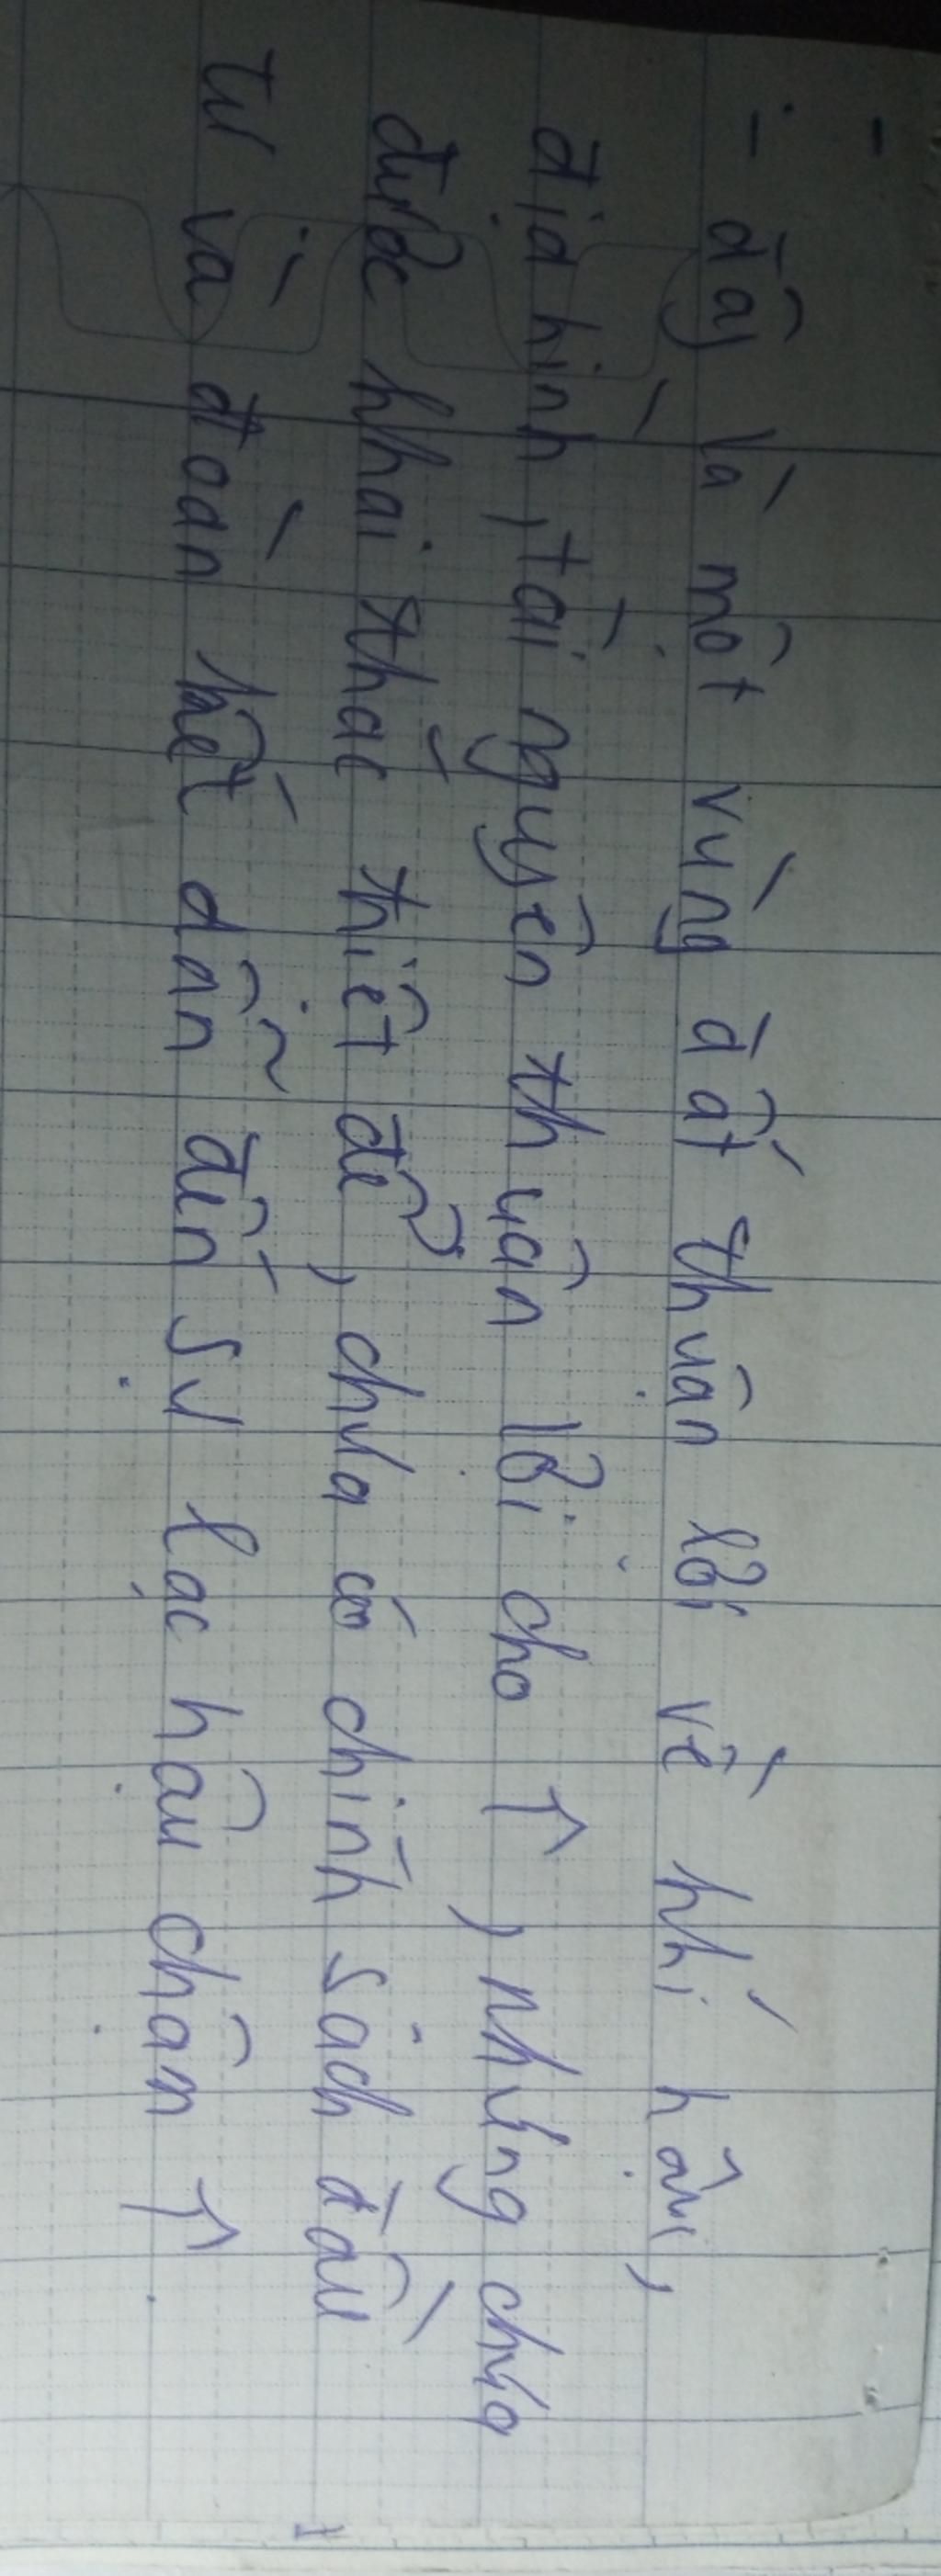 - đây là một vùng đất thuận lợi về khí hậu,
địa hình, tài nguyên thuận lợi cho ↑, nhưng chưa
được khai thác triệt để, chưa có chính sách đầu
tư và đoàn kết dẫn đến sự lạc hậu chậm ↑.